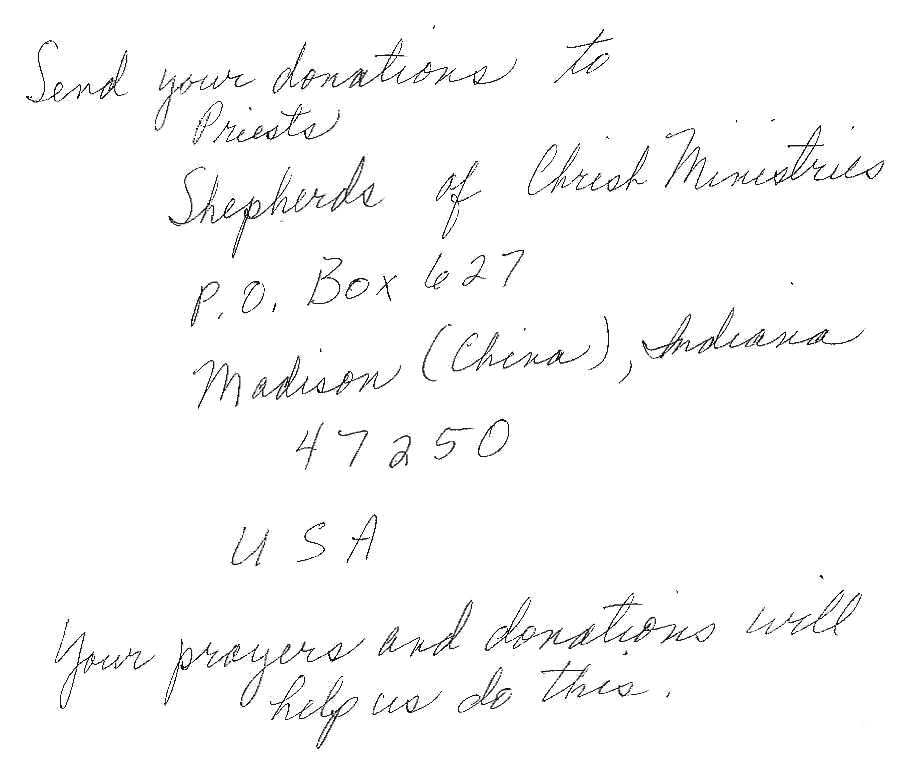 Send your donations to
Priests
Shepherds of Christ Ministries
P.O. Box 627
Madison (China), Indiana
47250
USA
Your prayers and donations will
help us do this.